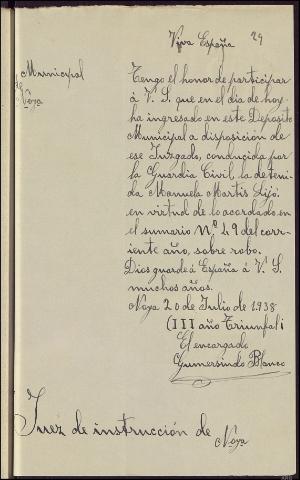 Viva España 29
Municipal
de
Noya
Tengo el honor de participar
á V. S. que en el dia de hoy
ha ingresado en este Deposito
Municipal a disposición de
ese Juzgado, conducida por
la Guardia Civil la deteni-
da Manuela Martis Lijó.
en virtud de lo acordado en
el sumario Nº 49 del cor-
riente año, sobre robo.
Dios guarde á España á V. S.
muchos años.
Noya 20 de Julio de 1938
(III año Triunfal)
El encargado
Gumersindo Blanco
Juez de instrucción de Noya